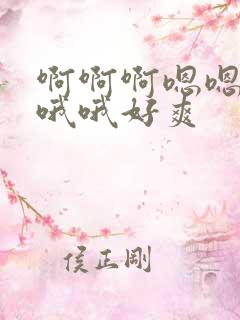 啊啊啊嗯嗯
哦哦好爽
侯正刚